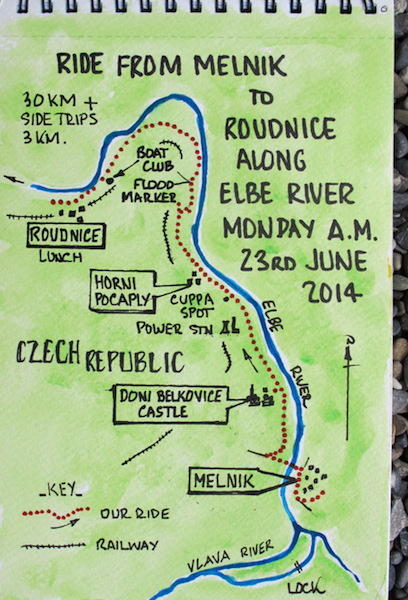 RIDE FROM MELNIK
TO
ROUDNICE
ALONG
ELBE RIVER
MONDAY A.M.
23RD JUNE
2014
30 KM +
SIDE TRIPS
3 KM.
BOAT
CLUB
FLOOD
MARKER
ROUDNICE
LUNCH
HORNI
POCAPLY
CUPPA
SPOT
POWER STN
ELBE
RIVER
CZECH REPUBLIC
DONI BELKOVICE
CASTLE
MELNIK
KEY
OUR RIDE
RAILWAY
VLAVA RIVER
LOCK